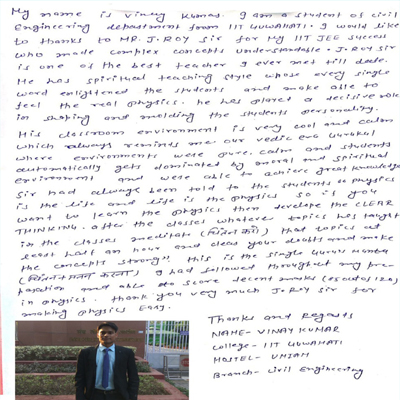 My name is Vinay Kumar. I am a student of civil
Engineering department from IIT GUWAHATI. I would like
to thanks to MR. J. ROY Sir for My IIT JEE success
who made complex concepts understandable. J. Roy sir
is one of the best teacher I ever met till date.
He has spiritual teaching style whose every single
word enlightened the students and make able to
feel the real physics. he has played a decisive role
in shaping and molding the students personality.
His classroom environment is very cool and calm
which always reminds me our vedic era Gurukul
where environments were pure calm and students
automatically gets dominated by moral and spiritual
environment and were able to achieve great knowledge
Sir had always been told to the students so physics
is the life and life is the physics so if you
want to learn the physics then develope the CLEAR
THINKING. after the classes whatever topics has taught
in the classes meditate (चिंतन करो) that topics at
least half an hour and clear your doubts and make
the concepts strong". this is the single Guru's Mantra
(चिंतन मनन करना) I had followed throughout my pre-
paration and able to score decent marks
in physics. thank you very much J. Roy sir for
making physics Easy.
Thanks and Regards
NAME- VINAY KUMAR
College- IIT GUWAHATI
HOSTEL- UMIAM
Branch- Civil Engineering